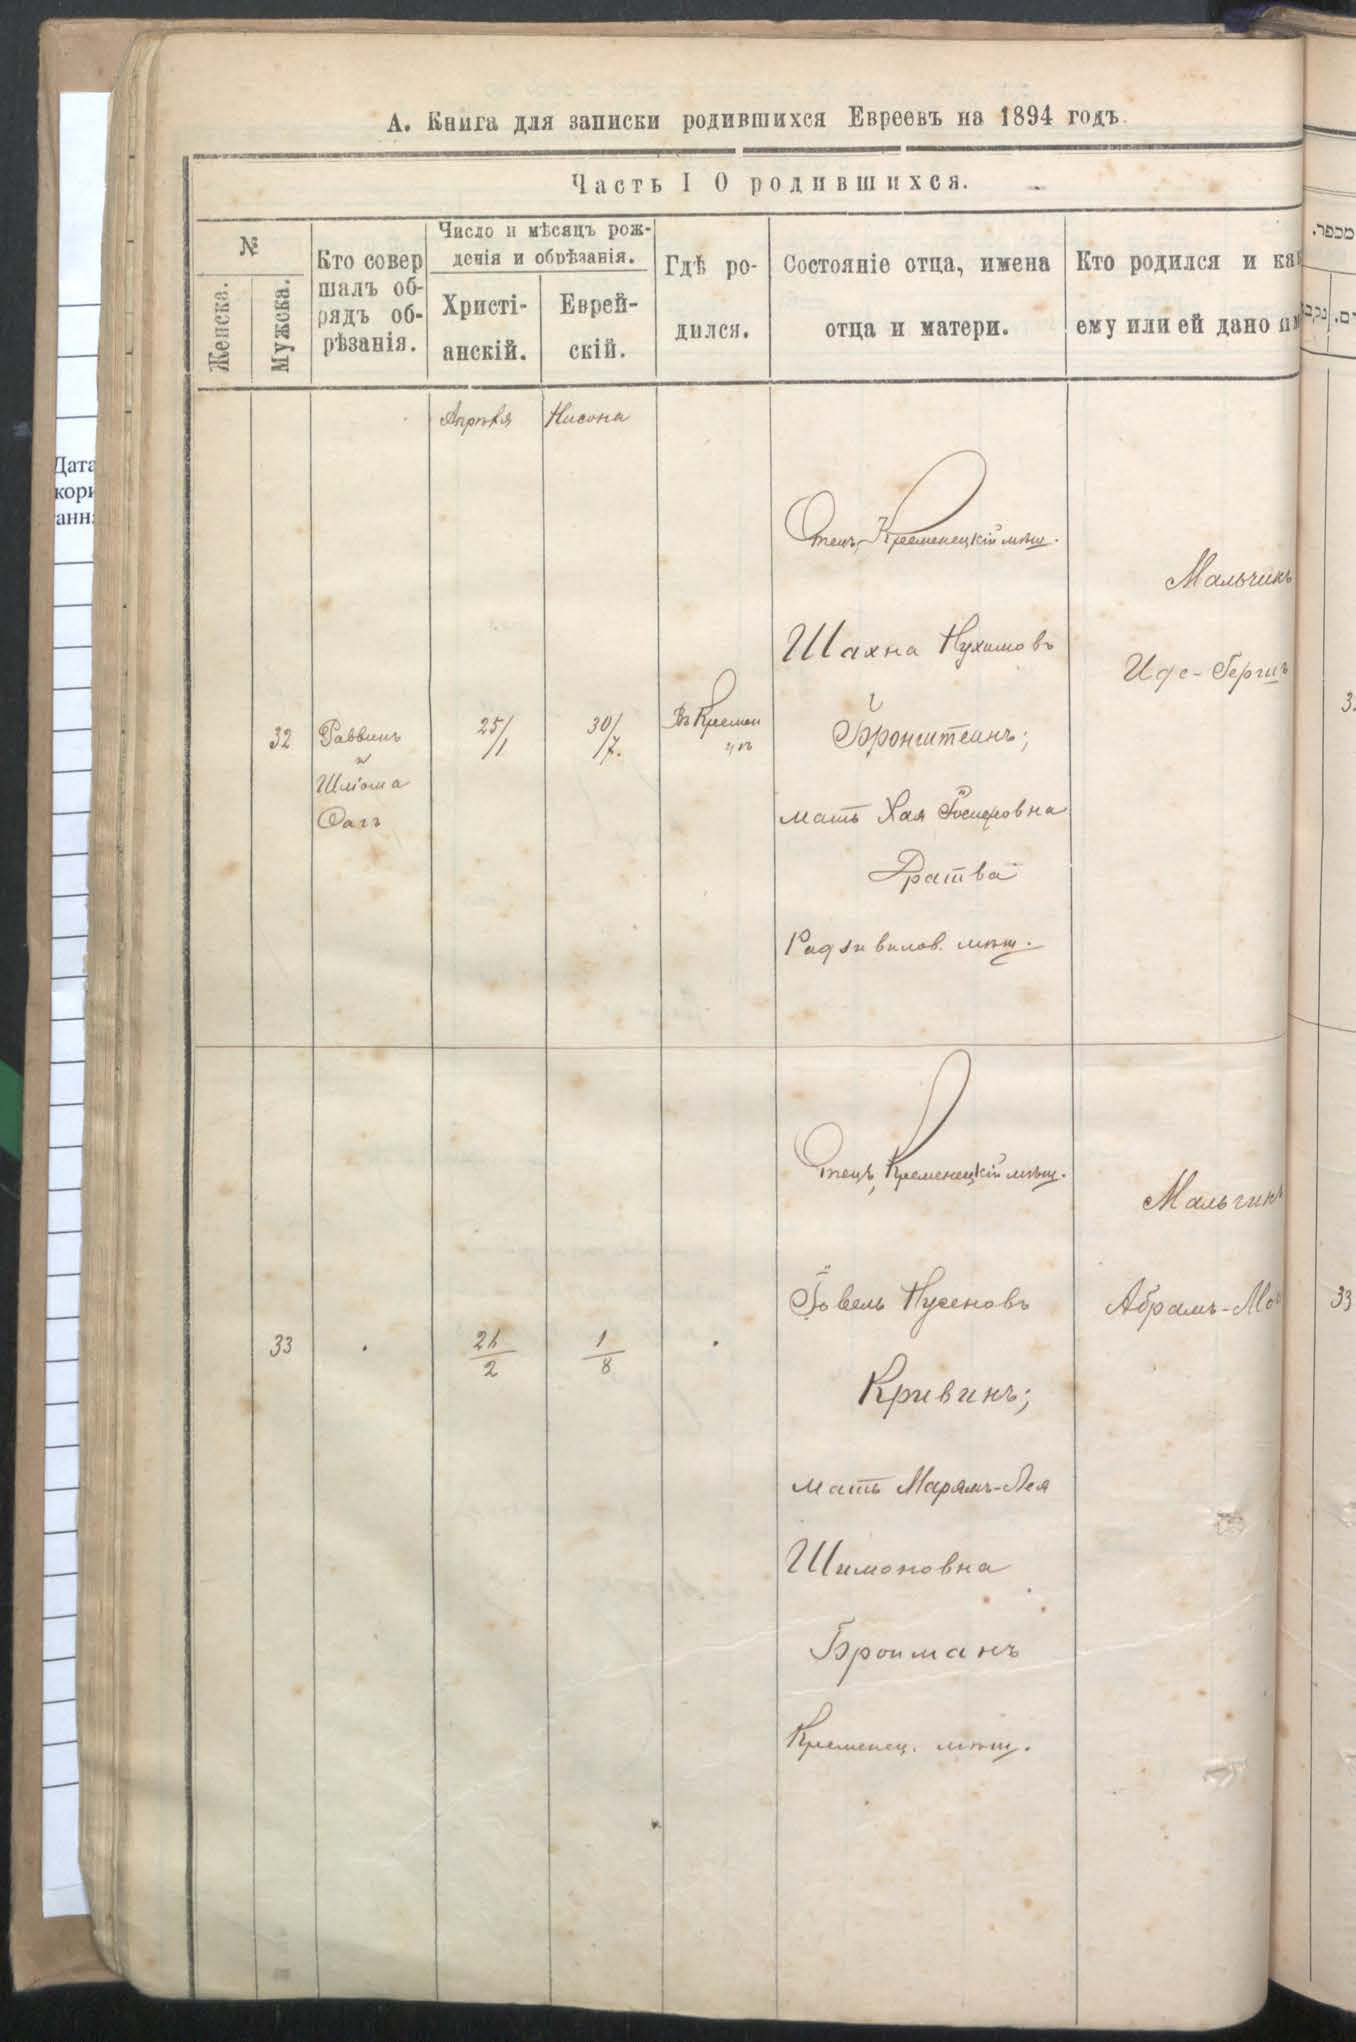 А. Книга для записки родившихся Евреевъ на 1894 годъ.
Часть I О родившихся.
№
Женска.
Мужска.
Кто совер
шалъ об-
рядъ об-
рѣзанія.
Число и мѣсяцъ рож-
денія и обрѣзанія.
Христі-
анскій.
Еврей-
скій.
Гдѣ ро-
дился.
Состояніе отца, имена
отца и матери.
Кто родился и как
ему или ей дано им
Апрѣля
Нисона
32
Раввинъ
и
Шліома
25/1
30/7.
Въ Кремен
цѣ
Отецъ, Кременецкій мѣщ.
Шахна Нухимовъ
Бронштейнъ;
мать Хая Іосифовна
Дратва
Радзивилов. мѣщ.
Мальчикъ
Ице-Герш
33
2
1
8
Отецъ, Кременецкій мѣщ.
Іовель Нусеновъ
Кривинъ;
мать Марямъ-Лея
Шимоновна
Бройманъ
Кременец. мѣщ.
Мальчикъ
Абрамъ-Мо
מספר.
33
Дата
кори